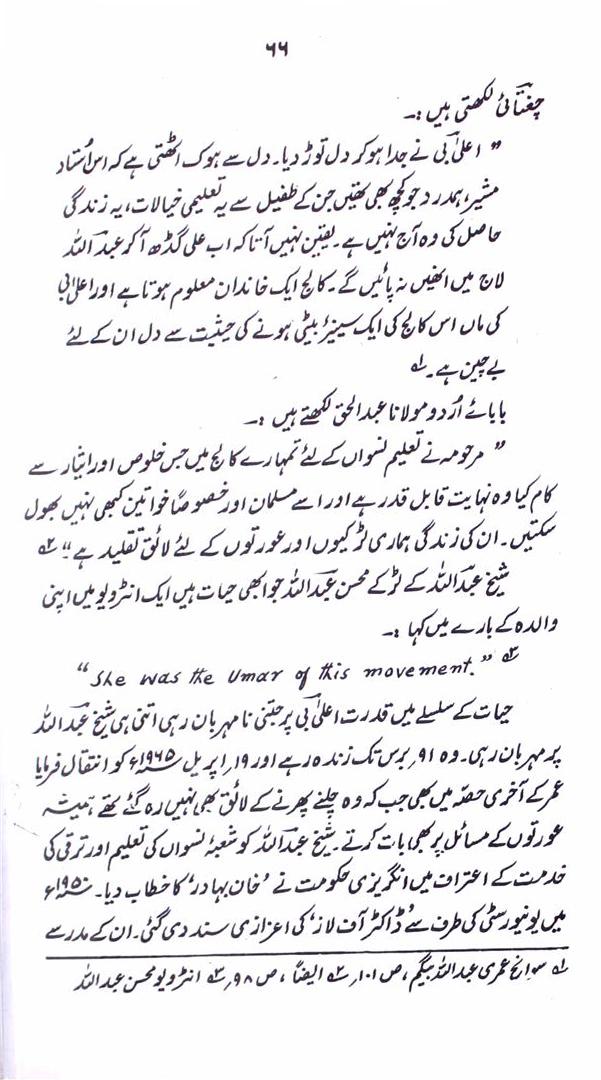 ۶۶
چغتائی لکھتی ہیں :۔
" اعلیٰ بی نے جدا ہوکر دل توڑ دیا۔ دل سے ہوک اٹھتی ہے کہ اس اُستاد
مشیر، ہمدرد جو کچھ بھی تھیں جن کے طفیل سے یہ تعلیمی خیالات، یہ زندگی
حاصل کی وہ آج نہیں ہے۔ یقین نہیں آتا کہ اب علی گڈھ آکر عبد اللہ
لاج میں انھیں نہ پائیں گے۔ کالج ایک خاندان معلوم ہوتا ہے اور اعلیٰ بی
کی ماں اس کالج کی ایک سینیر بیٹی ہونے کی حیثیت سے دل ان کے لئے
بے چین ہے۔ ۱؎
بابائے اُردو مولانا عبد الحق لکھتے ہیں :۔
" مرحومہ نے تعلیم نسواں کے لئے تمہارے کالج میں جس خلوص اور ایثار سے
کام کیا وہ نہایت قابل قدر ہے اور اسے مسلمان اور خصوصاً خواتین کبھی نہیں بھول
سکتیں۔ ان کی زندگی ہماری لڑکیوں اور عورتوں کے لئے لائق تقلید ہے " ۲؎
شیخ عبد اللہ کے لڑکے محسن عبد اللہ جو ابھی حیات ہیں ایک انٹرویو میں اپنی
والدہ کے بارے میں کہا :۔
"She was the Umar of this movement." ۳؎
حیات کے سلسلے میں قدرت اعلیٰ بی پر جتنی نامہربان رہی اتنی ہی شیخ عبد اللہ
پر مہربان رہی۔ وہ ۹۱ برس تک زندہ رہے اور ۱۹؍ اپریل ۱۹۶۵ء کو انتقال فرمایا
عمر کے آخری حصّہ میں بھی جب کہ وہ چلنے پھرنے کے لائق بھی نہیں رہ گئے تھے ہمیشہ
عورتوں کے مسائل پر بھی بات کرتے۔ شیخ عبد اللہ کو شعبۂ نسواں کی تعلیم اور ترقی کی
خدمت کے اعتراف میں انگریزی حکومت نے 'خان بہادر' کا خطاب دیا۔ ۱۹۵۰ء
میں یونیورسٹی کی طرف سے 'ڈاکٹر آف لاز' کی اعزازی سند دی گئی۔ ان کے مدرسے
۱؎ سوانح عمری عبد اللہ بیگم، ص ۱۰۱، ۲؎ ایضاً، ص ۹۸، ۳؎ انٹرویو محسن عبد اللہ